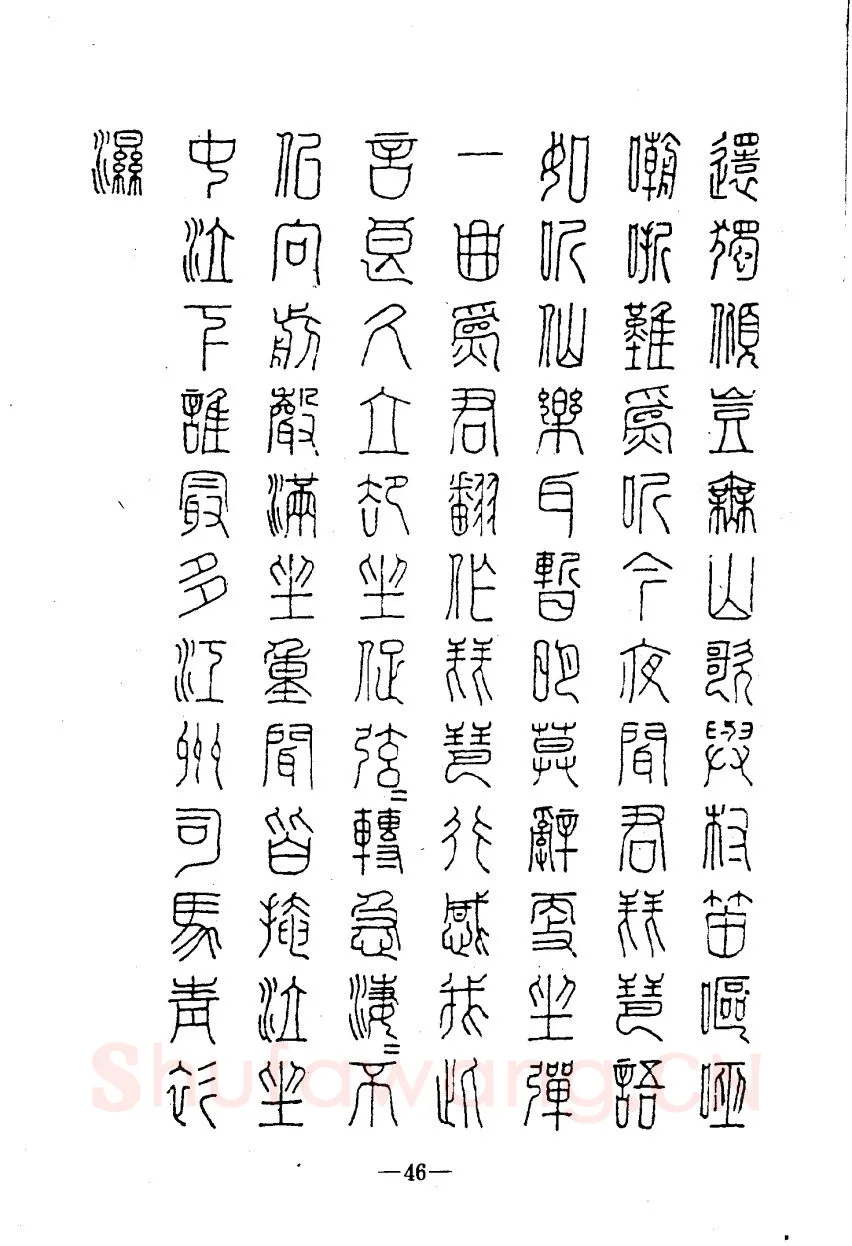 還獨傾豈無山歌與村笛嘔啞
嘲哳難爲听今夜聞君琵琶語
如听仙樂耳暫明莫辭更坐彈
一曲爲君翻作琵琶行感我此
言良久立却坐促弦=轉急淒=不
似向前聲滿坐重聞皆掩泣坐
中泣下誰最多江州司馬青衫
濕
—46—
Shufawang.CN